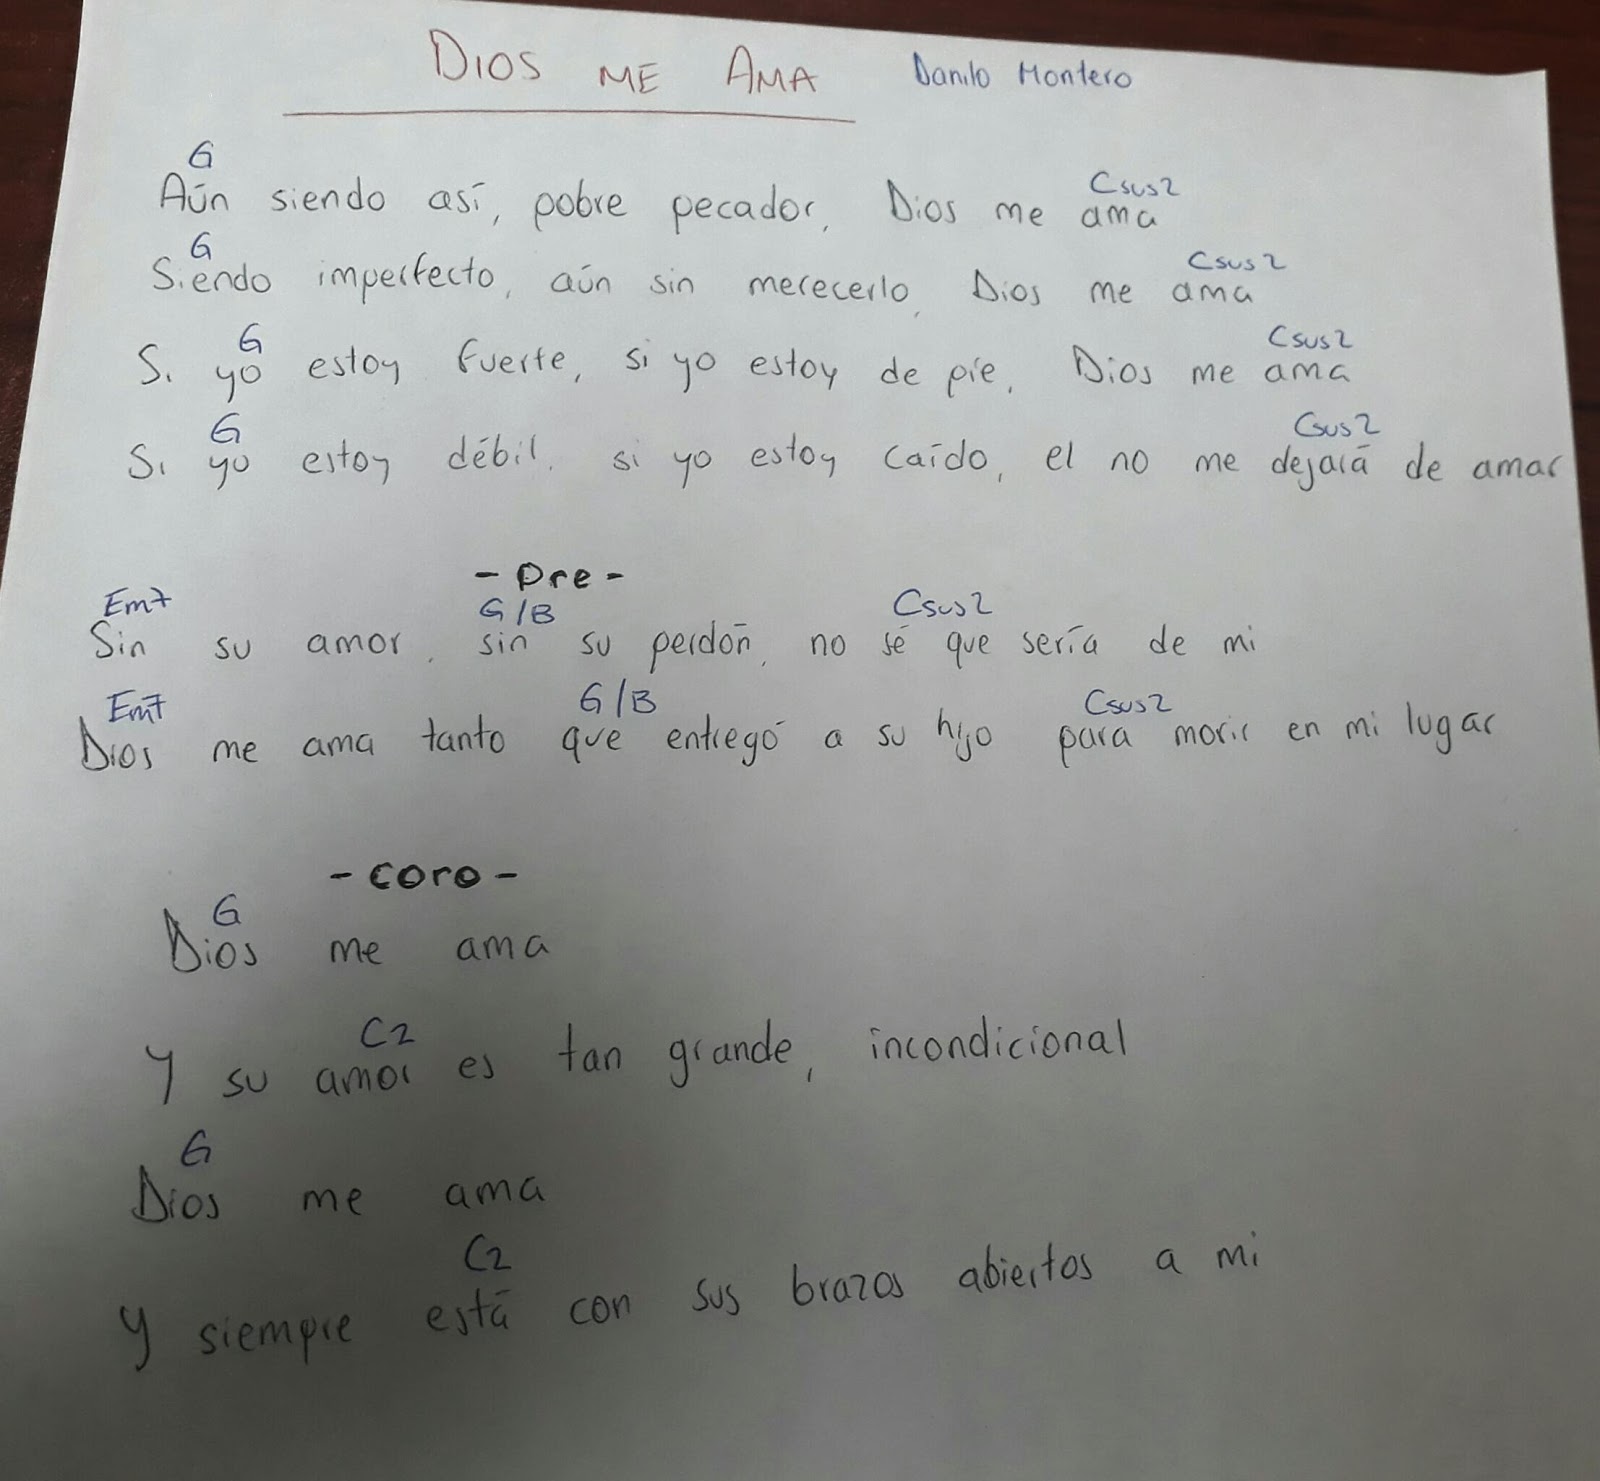 DIOS ME AMA Danilo Montero
G Csus2
Aún siendo así, pobre pecador, Dios me ama
G Csus2
Siendo imperfecto, aún sin merecerlo, Dios me ama
G Csus2
Si yo estoy fuerte, si yo estoy de pie, Dios me ama
G Csus2
Si yo estoy débil, si yo estoy caído, el no me dejará de amar
- Pre -
Em7 G/B Csus2
Sin su amor, sin su perdón, no sé que sería de mi
Em7 G/B Csus2
Dios me ama tanto que entregó a su hijo para morir en mi lugar
- coro -
G
Dios me ama
C2
Y su amor es tan grande, incondicional
G
Dios me ama
C2
Y siempre está con sus brazos abiertos a mi